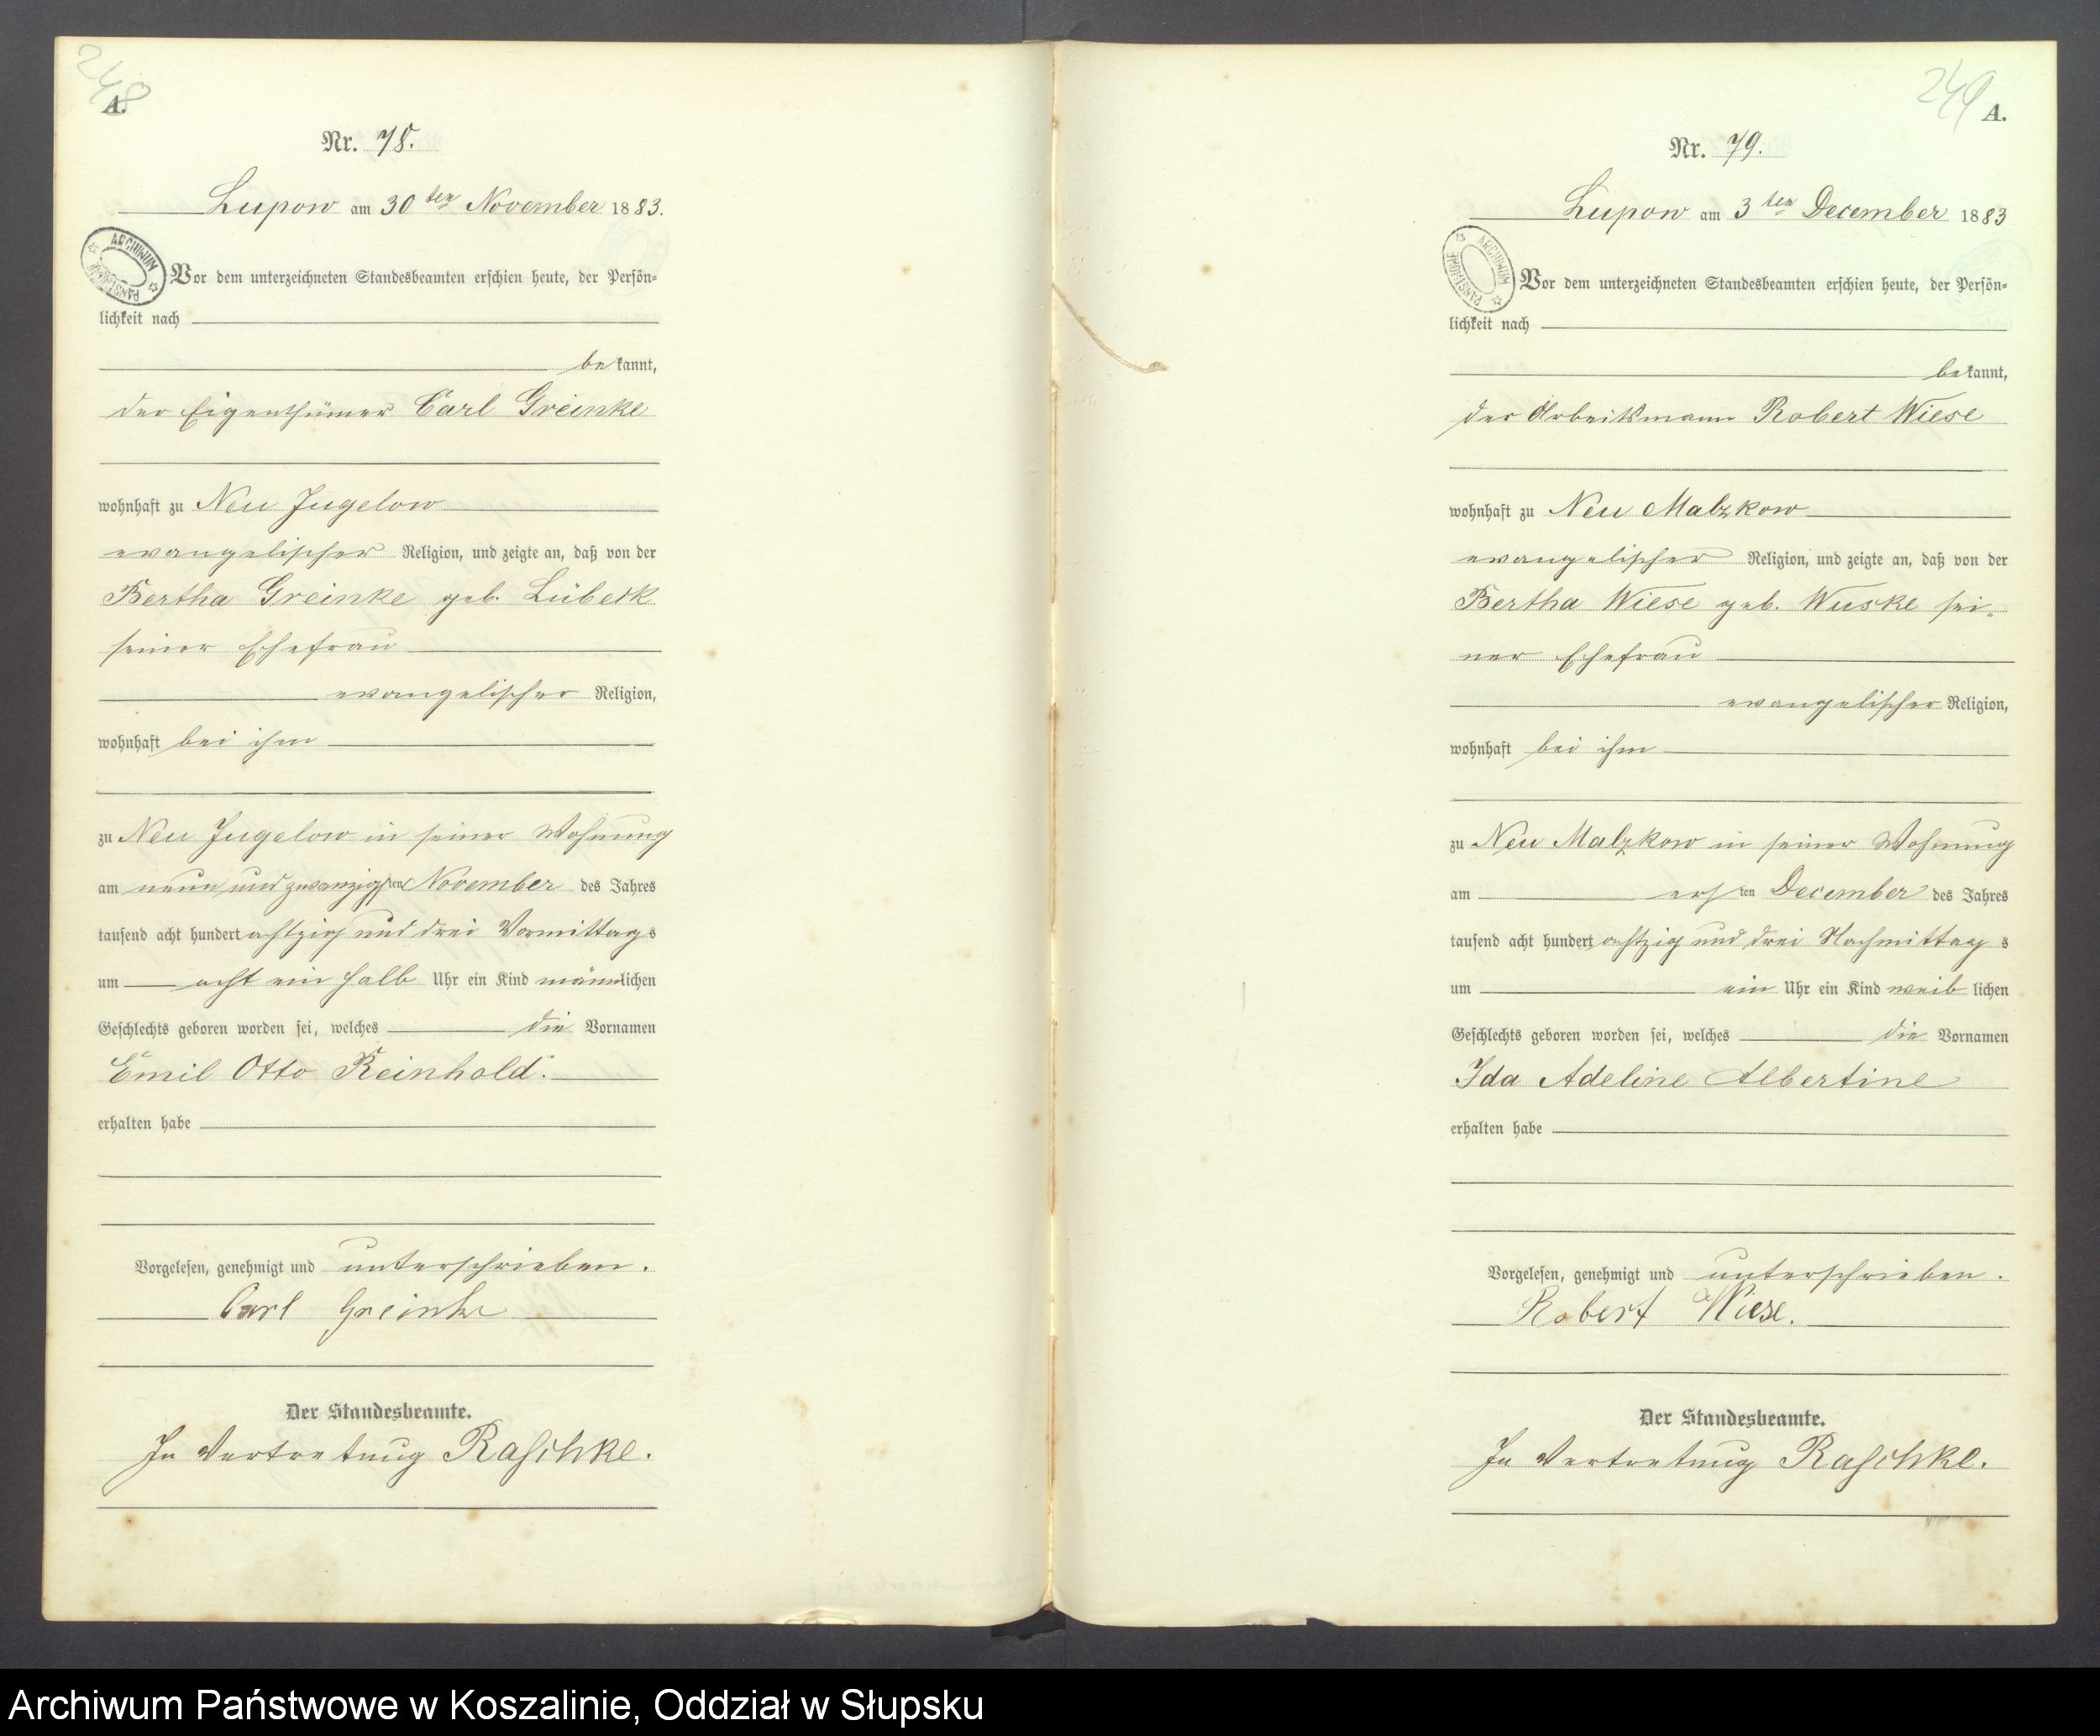 248
A.
Nr. 78.
Lupow am 30ten November 1883.
ARCHIWUM PAŃSTWOWE
Vor dem unterzeichneten Standesbeamten erschien heute, der Persön-
lichkeit nach
bekannt,
der Eigenthümer Carl Greinke
wohnhaft zu Neu Jugelow
evangelischer Religion, und zeigte an, daß von der
Bertha Greinke geb. Lübeck
seiner Ehefrau
evangelischer Religion,
wohnhaft bei ihm
zu Neu Jugelow in seiner Wohnung
am neun und zwanzigsten November des Jahres
tausend acht hundert achtzig und drei Vormittags
um acht ein halb Uhr ein Kind männlichen
Geschlechts geboren worden sei, welches die Vornamen
Emil Otto Reinhold.
erhalten habe
Vorgelesen, genehmigt und unterschrieben.
Carl Greinke
Der Standesbeamte.
In Vertretung Raschke.
249
A.
Nr. 79.
Lupow am 3ten December 1883
ARCHIWUM PAŃSTWOWE
Vor dem unterzeichneten Standesbeamten erschien heute, der Persön-
lichkeit nach
bekannt,
der Arbeitsmann Robert Wiese
wohnhaft zu Neu Malzkow
evangelischer Religion, und zeigte an, daß von der
Bertha Wiese geb. Wuske sei-
ner Ehefrau
evangelischer Religion,
wohnhaft bei ihm
zu Neu Malzkow in seiner Wohnung
am ersten December des Jahres
tausend acht hundert achtzig und drei Nachmittags
um ein Uhr ein Kind weiblichen
Geschlechts geboren worden sei, welches die Vornamen
Ida Adeline Albertine
erhalten habe
Vorgelesen, genehmigt und unterschrieben.
Robert Wiese.
Der Standesbeamte.
In Vertretung Raschke.
Archiwum Państwowe w Koszalinie, Oddział w Słupsku